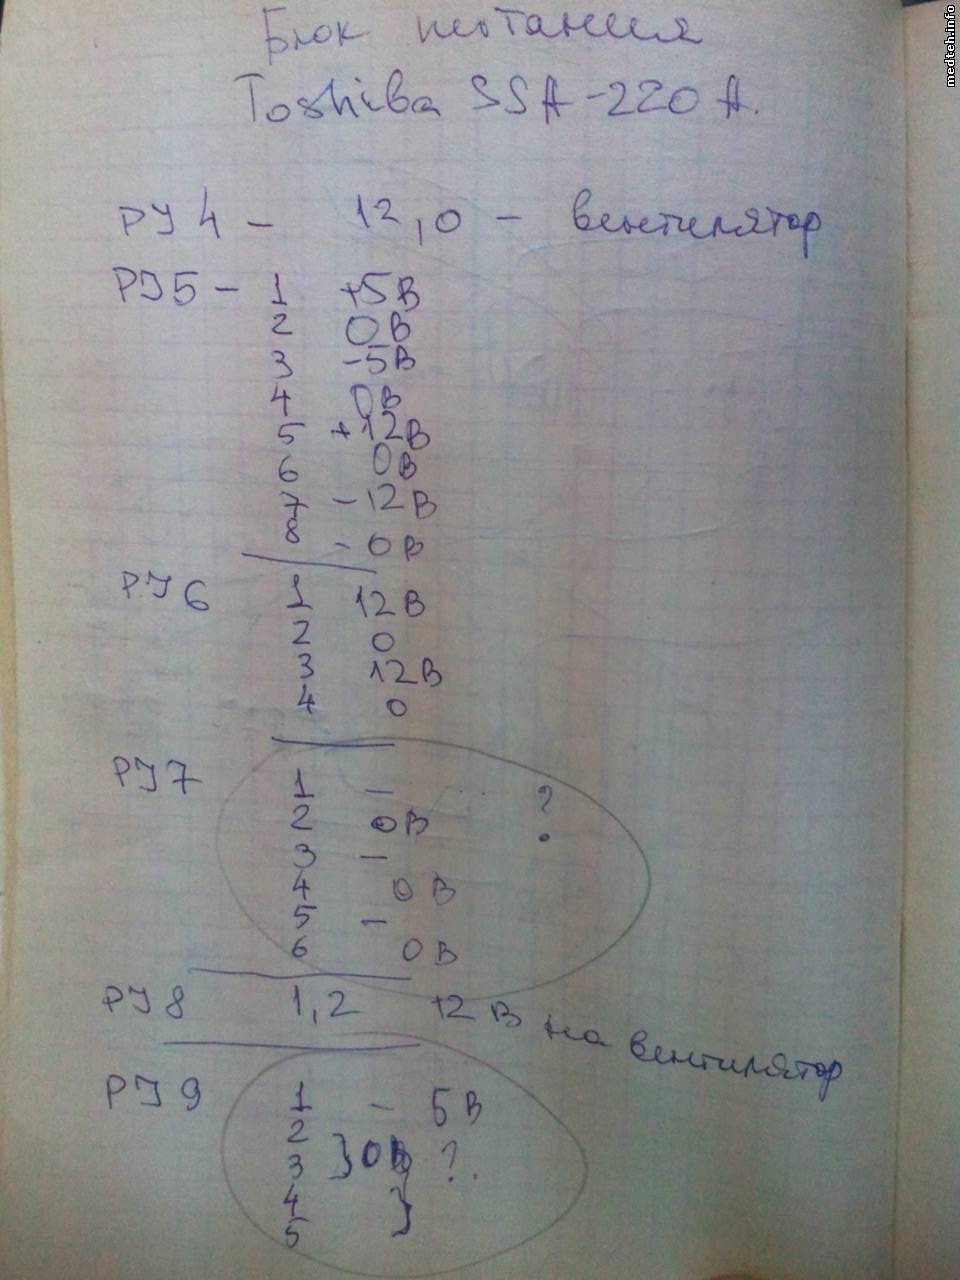 medteh.info
Блок питания
Toshiba SSA-220 A.
PJ4 - 12,0 - вентилятор
PJ5 - 1 +5В
2 0В
3 -5В
4 0В
5 +12В
6 0В
7 -12В
8 - 0В
PJ6 1 12В
2 0
3 12В
4 0
PJ7 1 - ?
2 0В
3 -
4 0В
5 -
6 0В
PJ8 1,2 12В на вентилятор
PJ9 1 - 5В
2
3 } 0В ?
4 }
5